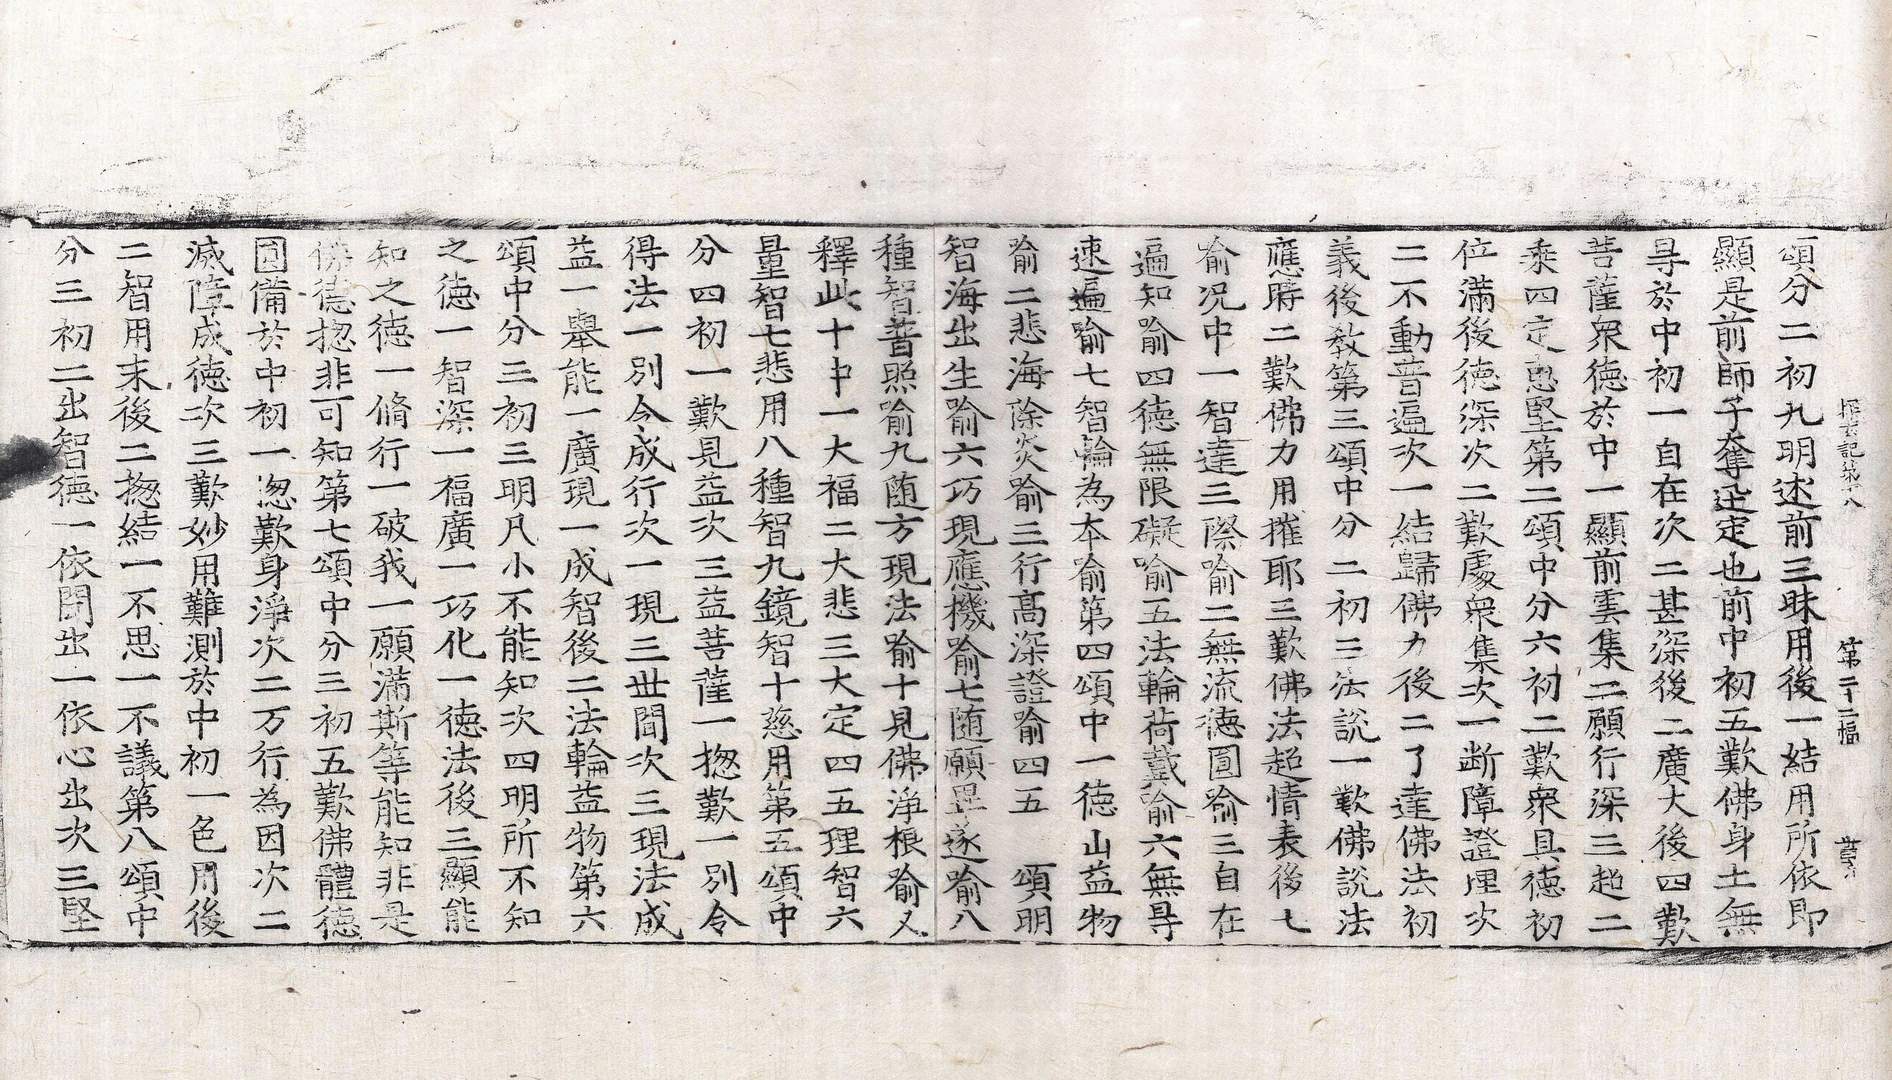 探玄記第十八　第二十二幅
頌分二初九明述前三昧用後一結用所依即
顯是前師子奪迅定也前中初五歎佛身土無
㝵於中初一自在次二甚深後二廣大後四歎
菩薩衆德於中一顯前雲集二願行深三超二
乘四定惠堅第二頌中分六初二歎衆具德初
位滿後德深次二歎處衆集次一断障證理次
二不動普遍次一結歸佛力後二了達佛法初
義後教第三頌中分二初三法說一歎佛說法
應時二歎佛力用摧耶三歎佛法超情表後七
喻况中一智達三際喻二無流德圓喻三自在
遍知喻四德無限礙喻五法輪荷戴喻六無㝵
速遍喻七智輪為本喻第四頌中一德山益物
喻二悲海除炎喻三行高深證喻四五　頌明
智海出生喻六巧現應機喻七随願畢遂喻八
種智普照喻九随方現法喻十見佛淨根喻又
釋此十中一大福二大悲三大定四五理智六
量智七悲用八種智九鏡智十慈用第五頌中
分四初一歎見益次三益菩薩一揔歎一別令
得法一別令成行次一現三世間次三現法成
益一舉能一廣現一成智後二法輪益物第六
頌中分三初三明凡小不能知次四明所不知
之德一智深一福廣一巧化一德法後三顯能
知之德一脩行一破我一願滿斯等能知非是
佛德揔非可知第七頌中分三初五歎佛體德
圓備於中初一揔歎身淨次二万行為因次二
滅障成德次三歎妙用難測於中初一色用後
二智用末後二揔結一不思一不議第八頌中
分三初二出智德一依聞出一依心出次三堅